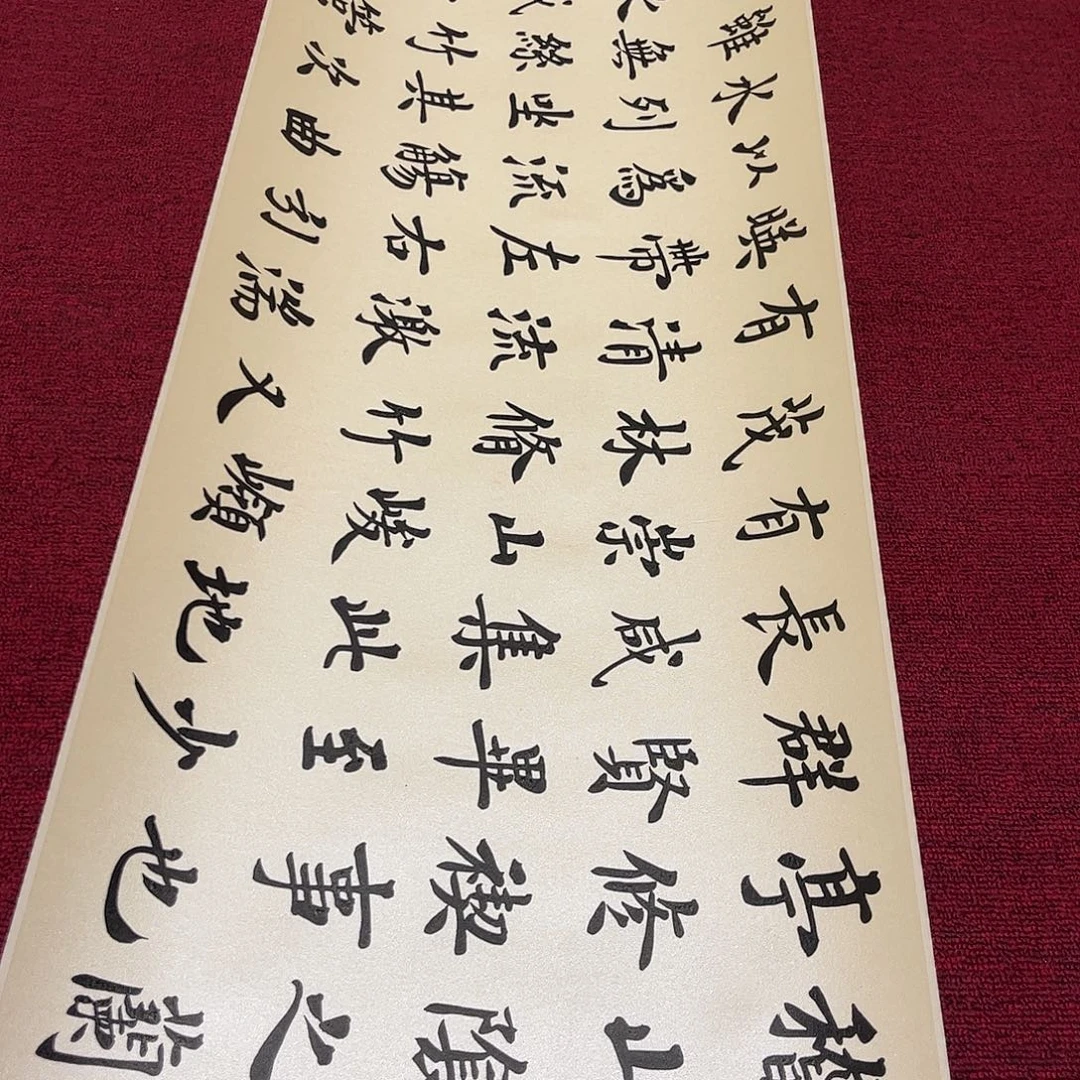 稽山陰之蘭
亭修禊事也
群賢畢至少
長咸集此地
有崇山峻嶺
茂林脩竹又
有清流激湍
暎帶左右引
以為流觴曲
水列坐其次
雖無絲竹管